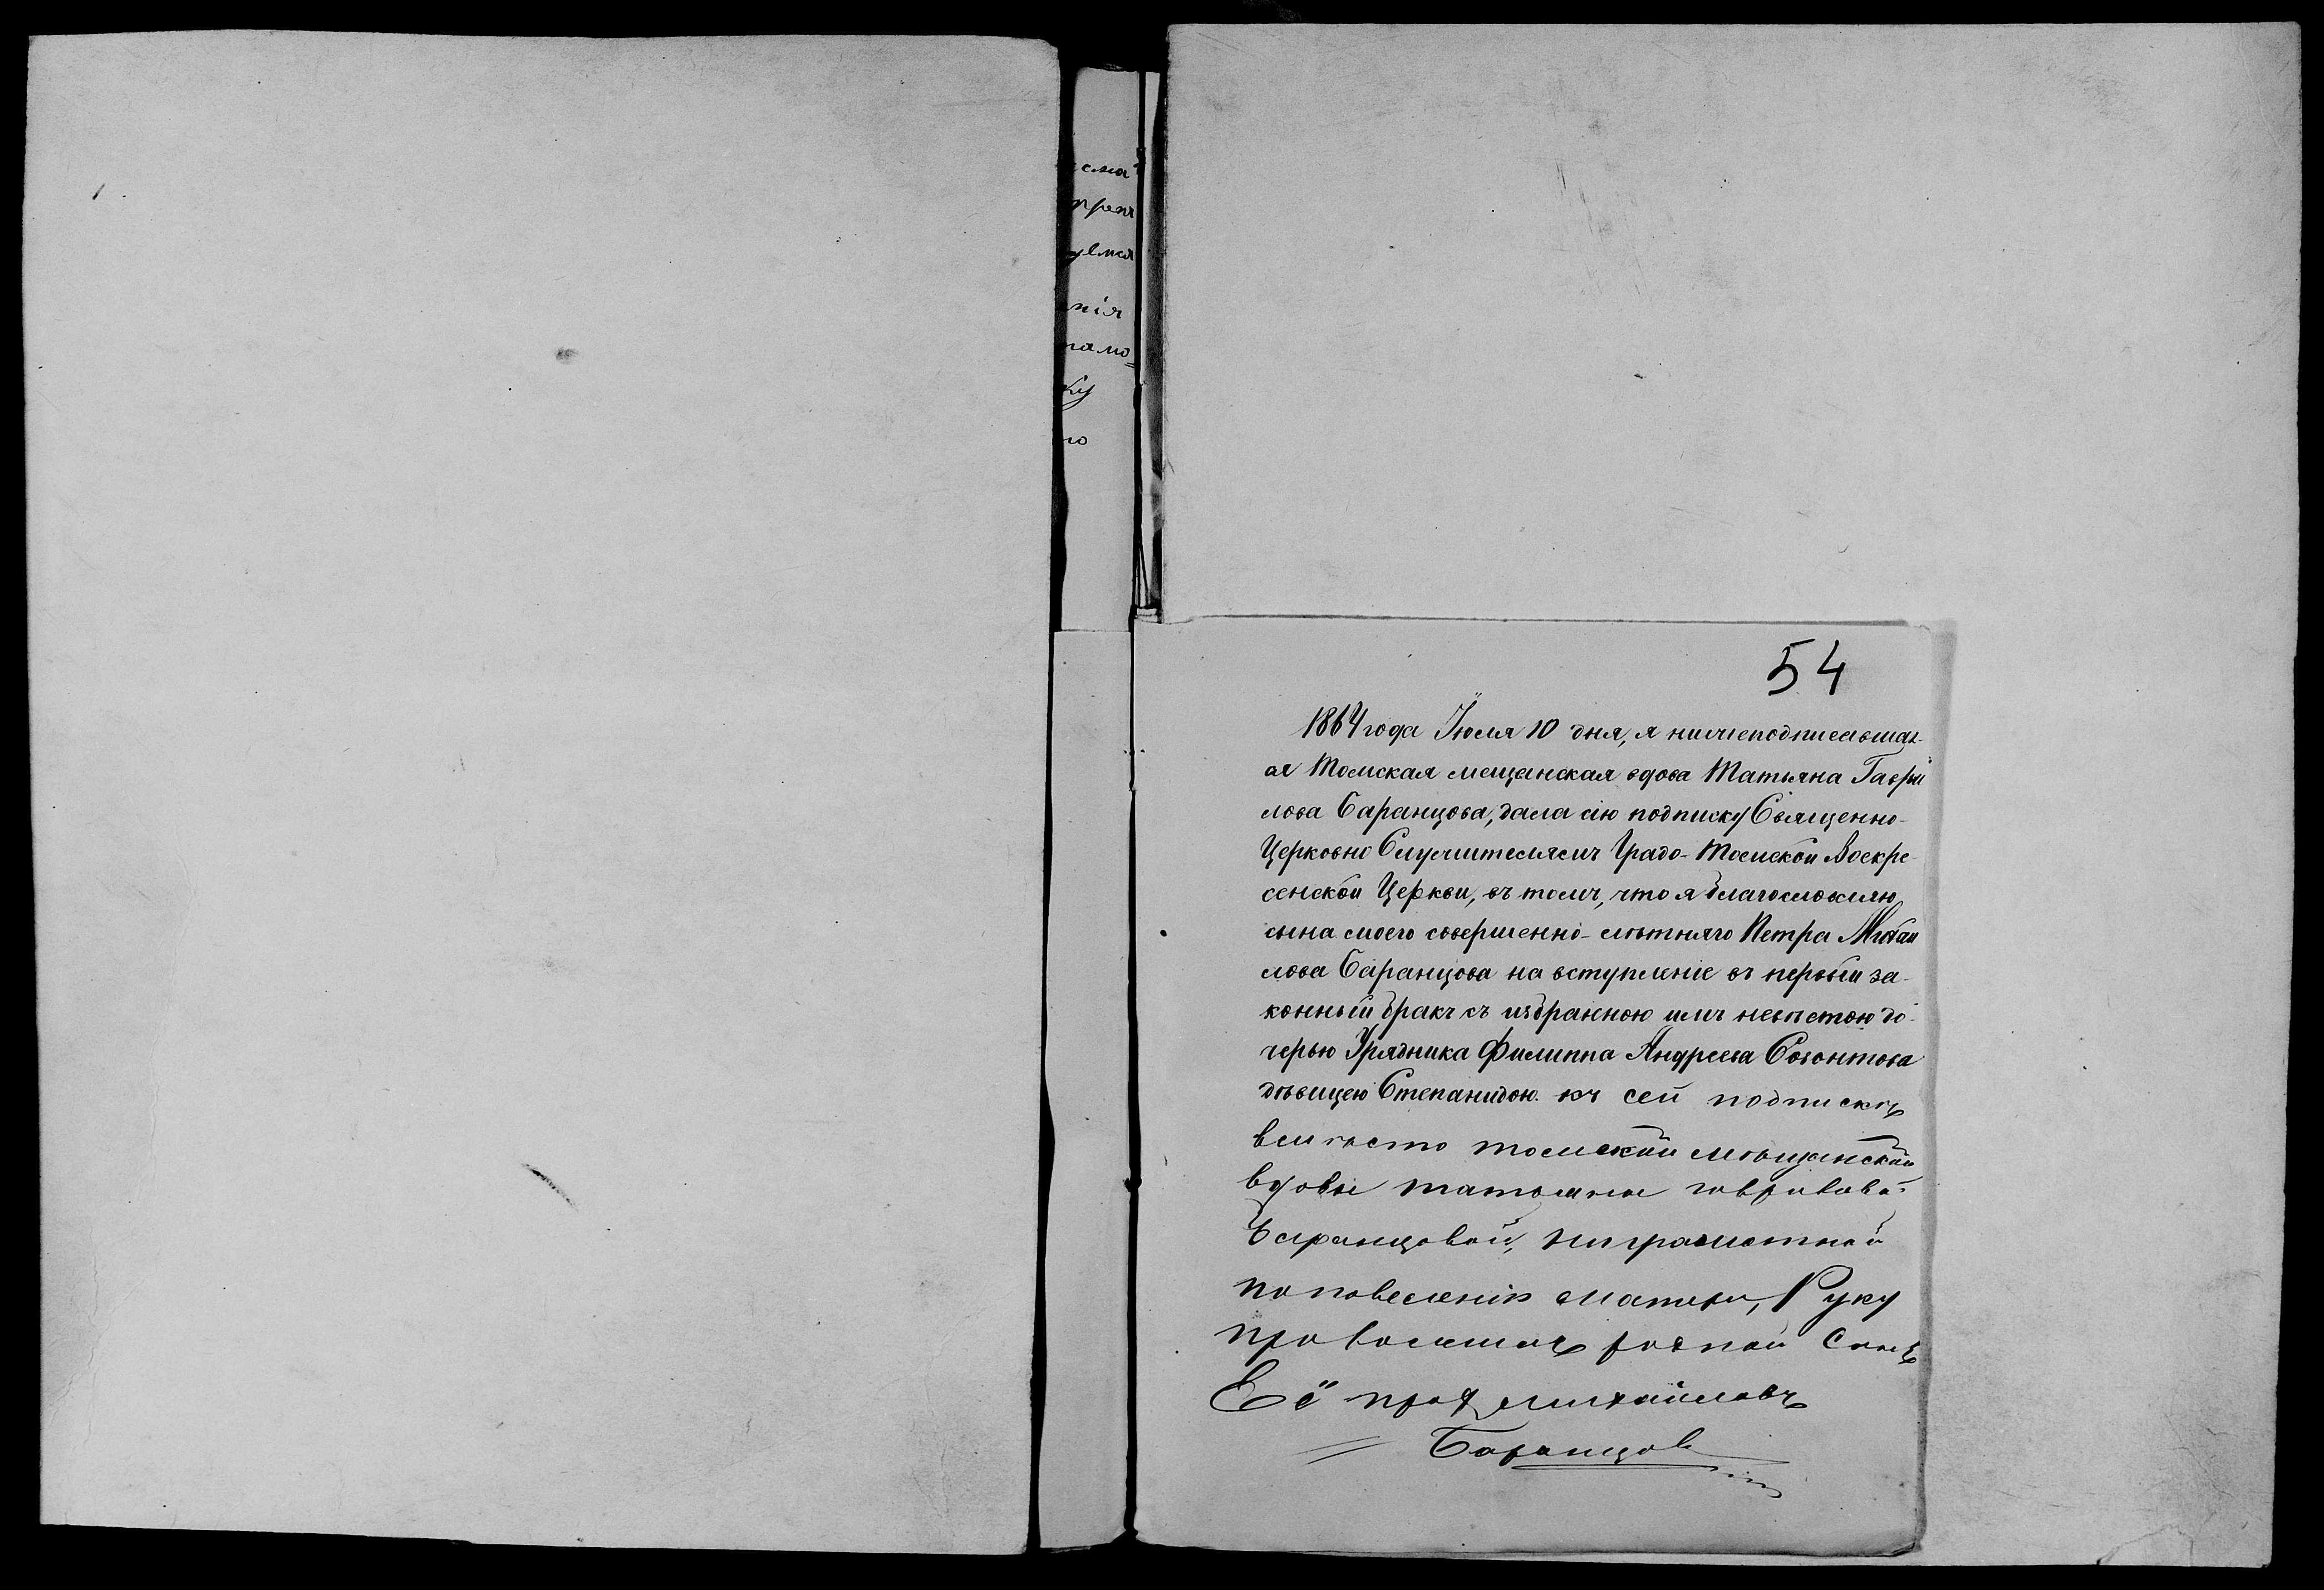 сма
прав
нія
намо-
ку
54
1864 года Іюля 10 дня, я нижеподписавшая-
ся Томская мещанская вдова Татьяна Гаври
лова Баранцова, дала сію подписку Священно-
Церковно Служителямъ Градо-Томской Воскре-
сенской Церкви, въ томъ, что я благословляю
сына моего совершенно-лѣтняго Петра Михаи
лова Баранцова на вступленіе въ первый за-
конный бракъ съ избранною имъ невѣстою до-
черью Урядника Филиппа Андреева Созонтова
дѣвицею Степанидою. къ сей подпискѣ
вмѣсто томской мѣщанской
вдовы татьяны гавриловой
Баранцовой, ниграмотной
по повеленію матери, Руку
приложилъ родной Сынъ
Её михайловъ
Баранцов